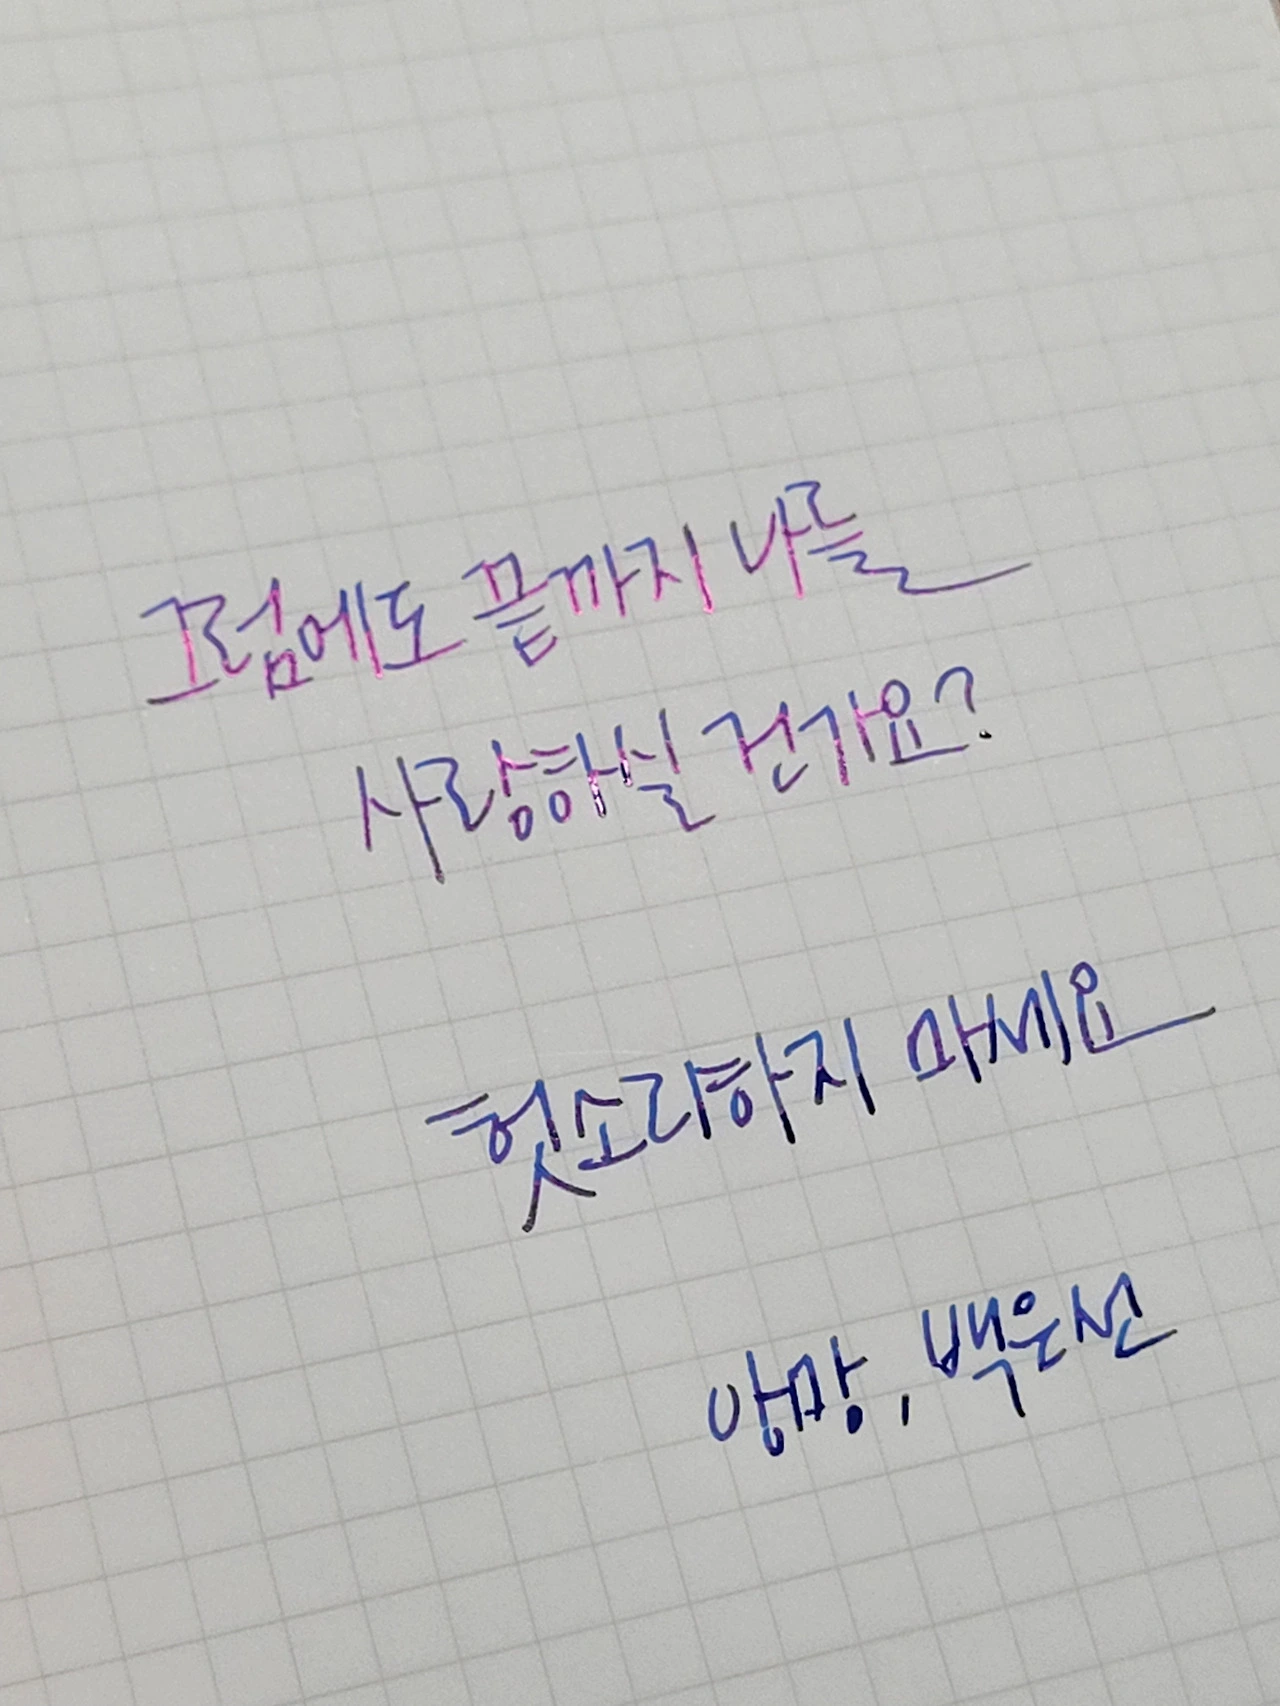 그럼에도 끝까지 나를
사랑하실 건가요?
헛소리하지 마세요
앙망, 백은선